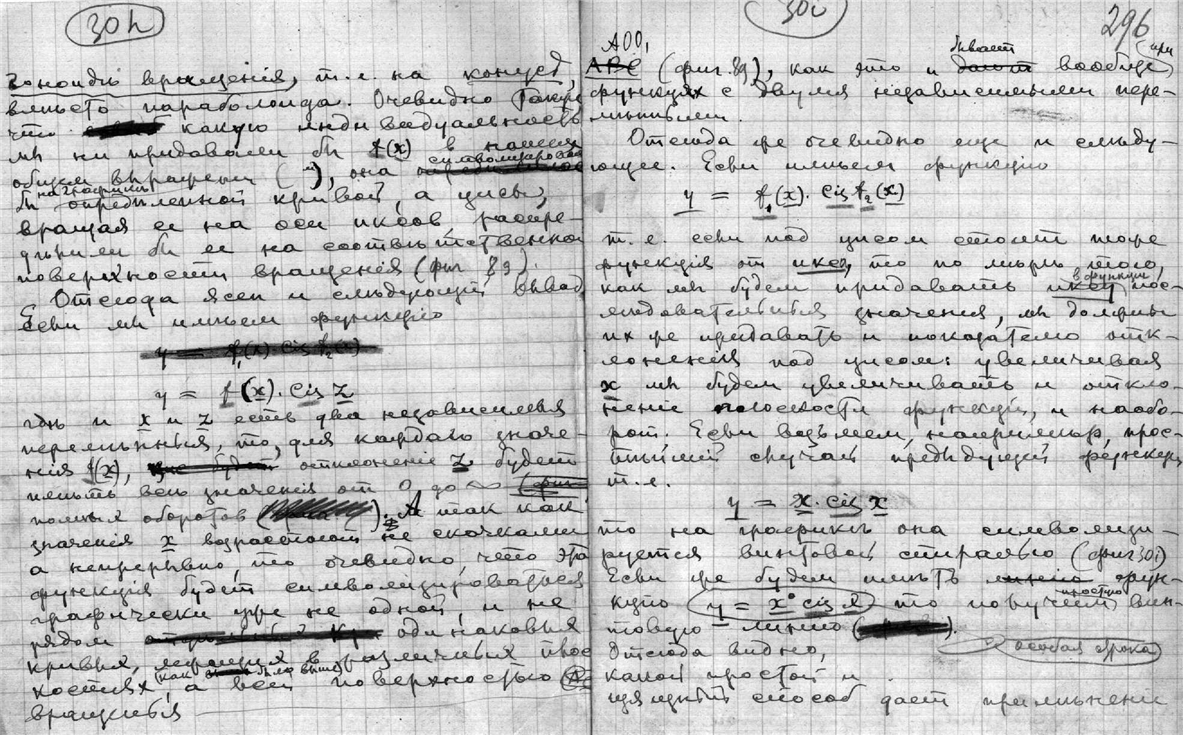 30h
коноидъ вращенія, т.е. на конусъ,
вмѣсто параболоида. Очевидно также
что какую индивидуальность
мы ни придавали бы f(x) въ нашемъ
общемъ выраженіи ( ), она символизировалась
бы на графикѣ опредѣленной кривой, а цисъ,
вращая ее на оси иксовъ, распре-
дѣлилъ бы ее на соотвѣтственной
поверхности вращенія (фиг 89).
Отсюда ясенъ и слѣдующій выводъ
Если мы имѣемъ функцію
y = f₁(x) cis f₂(x)
y = f(x). cis z
гдѣ и x и z есть два независимыя
перемѣнныя, то, для каждаго значе-
нія f(x), отклоненіе z будетъ
имѣть всѣ значенія от 0 до ∞
полныхъ оборотовъ. А такъ какъ
значенія x возрастаютъ не скачками,
а непрерывно, то очевидно, что эта
функція будетъ символизироваться
графически уже не одной, и не
рядомъ одинаковыхъ
кривыхъ, въ различныхъ плос
костяхъ, (какъ было выше) а всей поверхностью
вращенія
30i
296
A00,
ABC (фиг. 89), какъ это и бываетъ вообще при
функціяхъ съ двумя независимыми пере-
мѣнными.
Отсюда же очевидно еще и слѣду-
ющее. Если имѣемъ функцію
y = f₁(x). cis f₂(x)
т.е. если подъ цисомъ стоитъ тоже
функція отъ икса, то по мѣрѣ того,
какъ мы будемъ придавать иксу въ функціи пос-
лѣдовательныя значенія, мы должны
ихъ же придавать и показателю откло-
ненія подъ цисомъ: увеличивая
x мы будемъ увеличивать и откло-
неніе плоскости функціи, и наобо-
ротъ. Если возьмемъ, напримѣръ, прос-
тѣйшій случай предыдущей функціи
т.е.
y = x. cis x
то на графикѣ она символизи-
руется винтовой спиралью (фиг 30i)
Если же будемъ имѣть функ-
цію y = x° cis x то получаемъ простую вин-
товую линію
Отсюда видно,
особая строка
какой простой и
изящный способъ даетъ примѣненіе